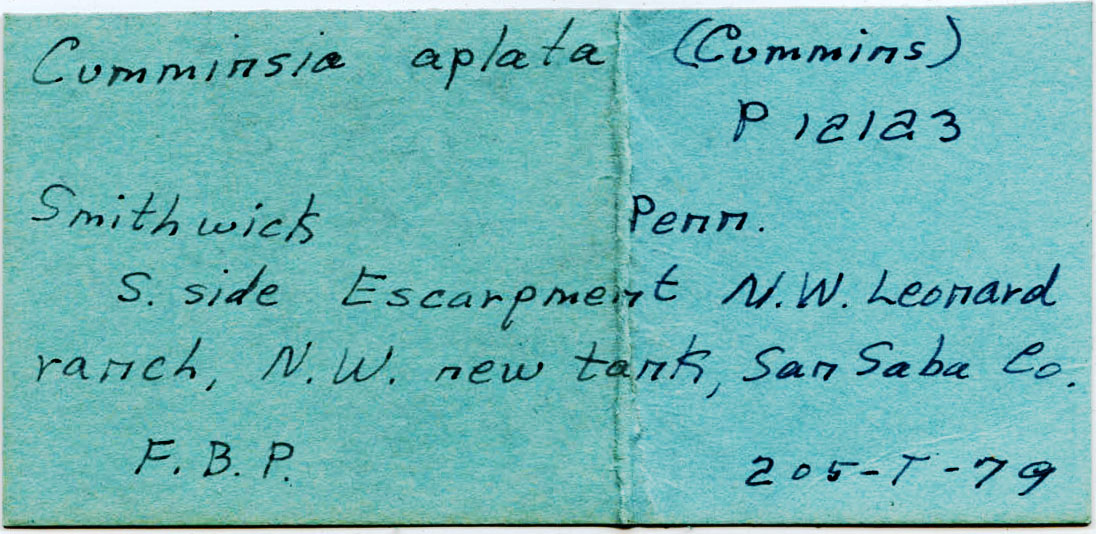 Cumminsia aplata (Cummins)
P 12123
Smithwick Penn.
S. side Escarpment N.W. Leonard
ranch, N.W. new tank, San Saba Co.
F. B. P. 205-T-79